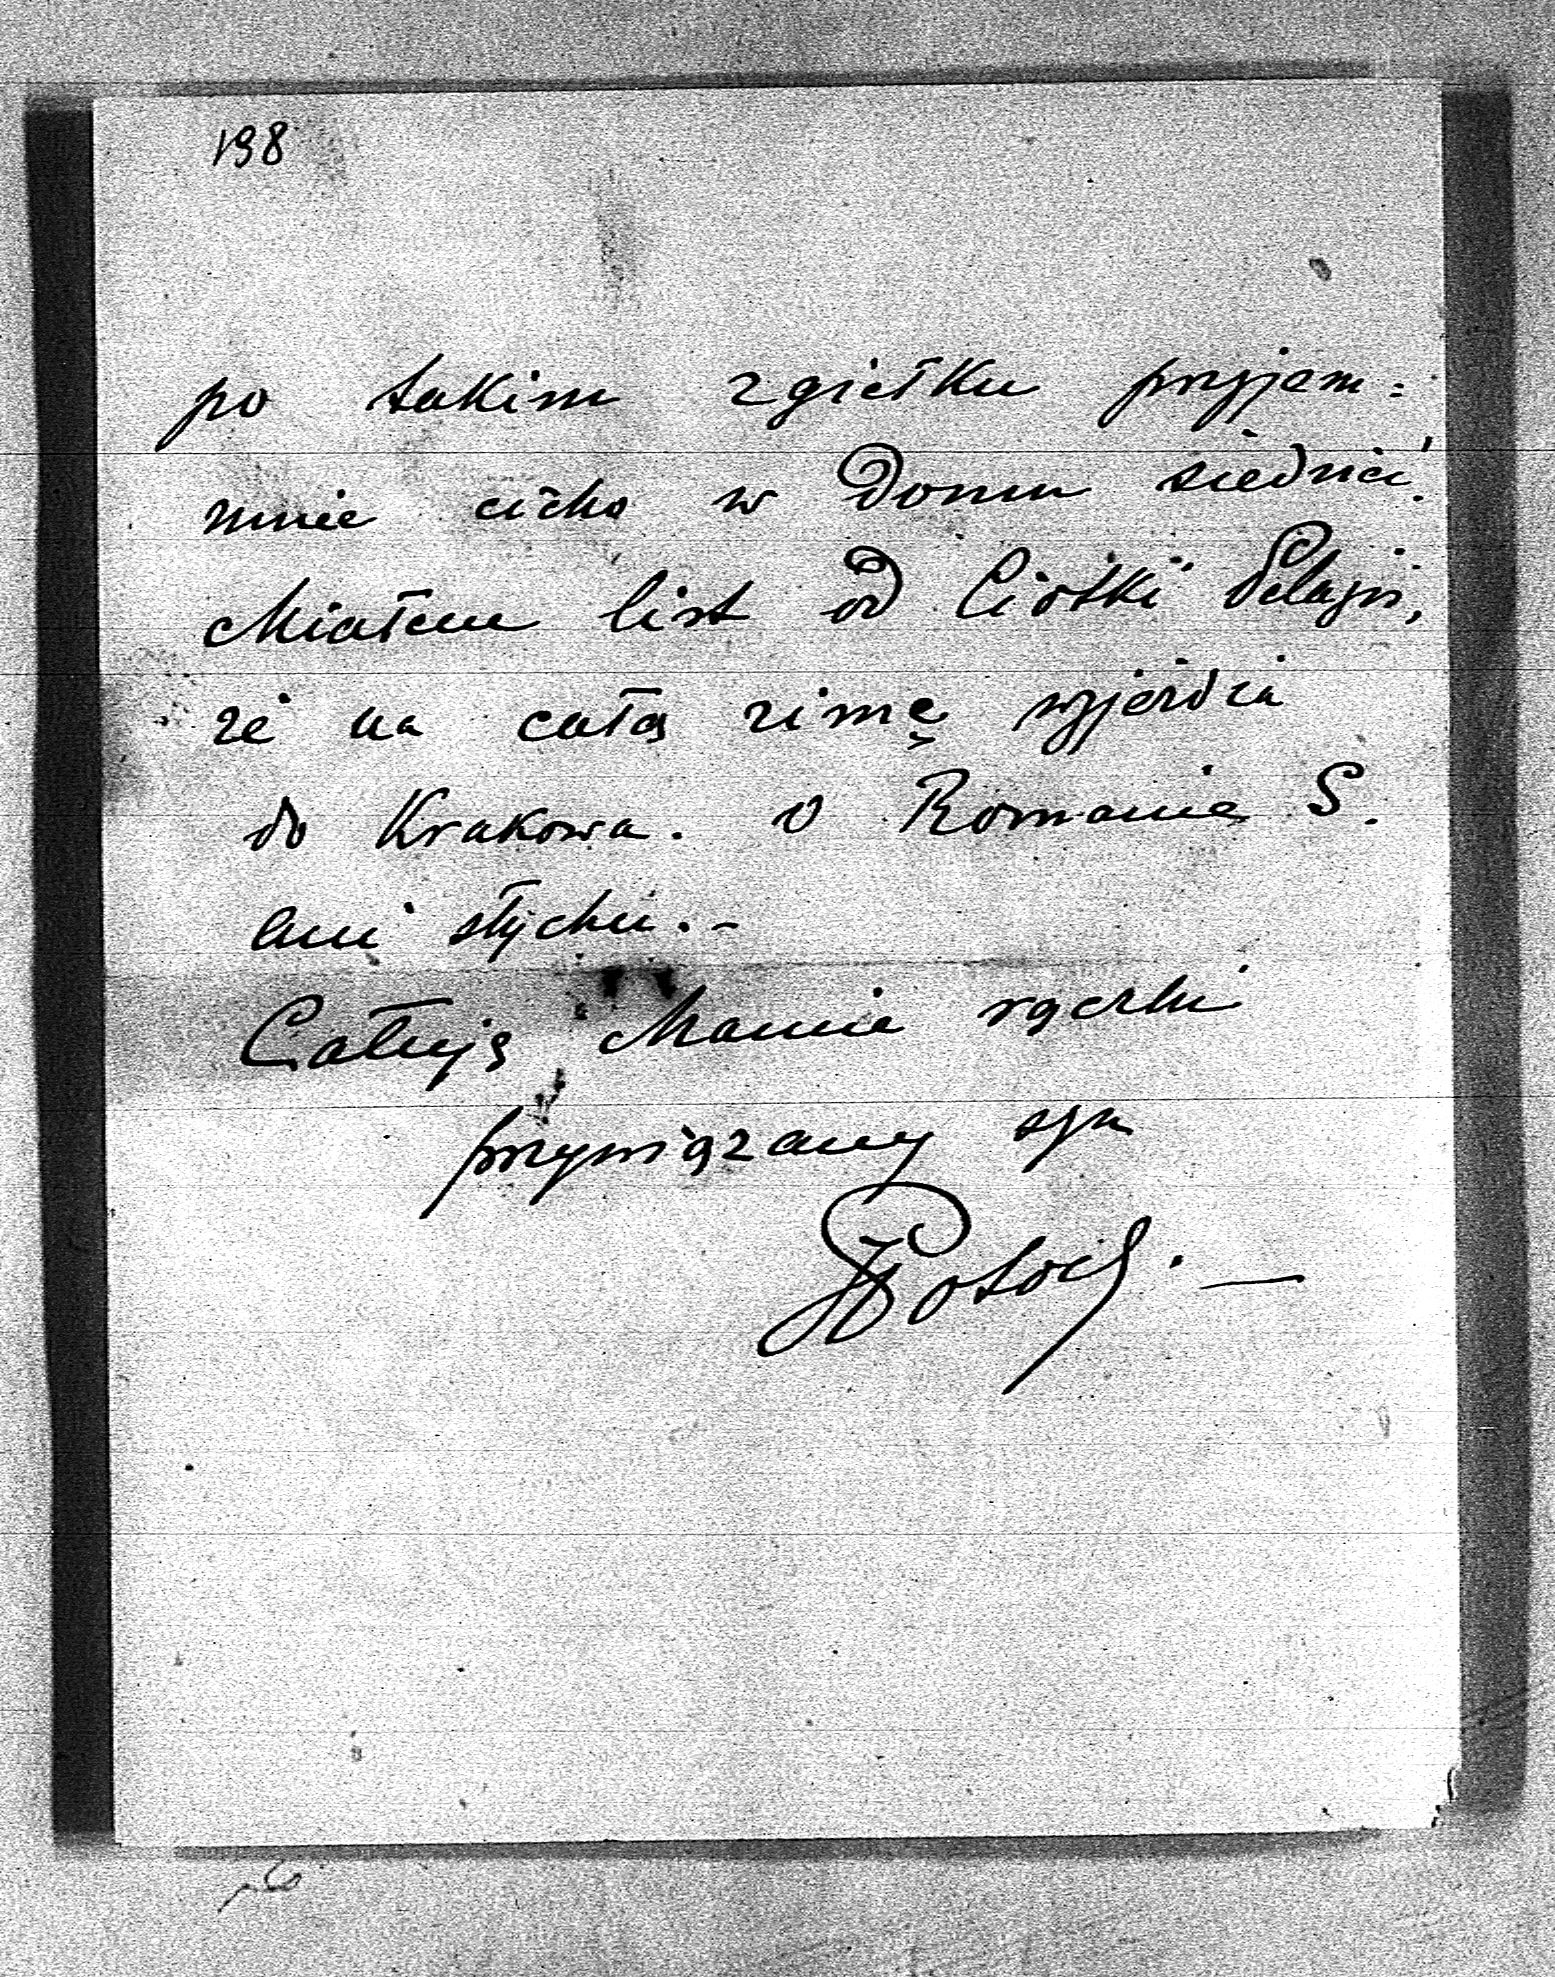 198
po takim zgiełku przyjem:
mnie cicho w domu siedzieć.
Miałem list od Ciotki Pelagii,
że na całą zimę wyjeżdża
do Krakowa. O Romanie S.
ani słychu.-
Całuję Mamie rączki
przywiązany syn
Potocki.—